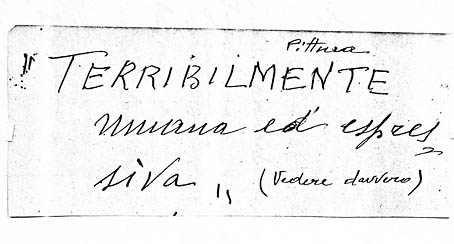 Pittura
" TERRIBILMENTE
umana ed espres=
siva " (Vedere davvero)